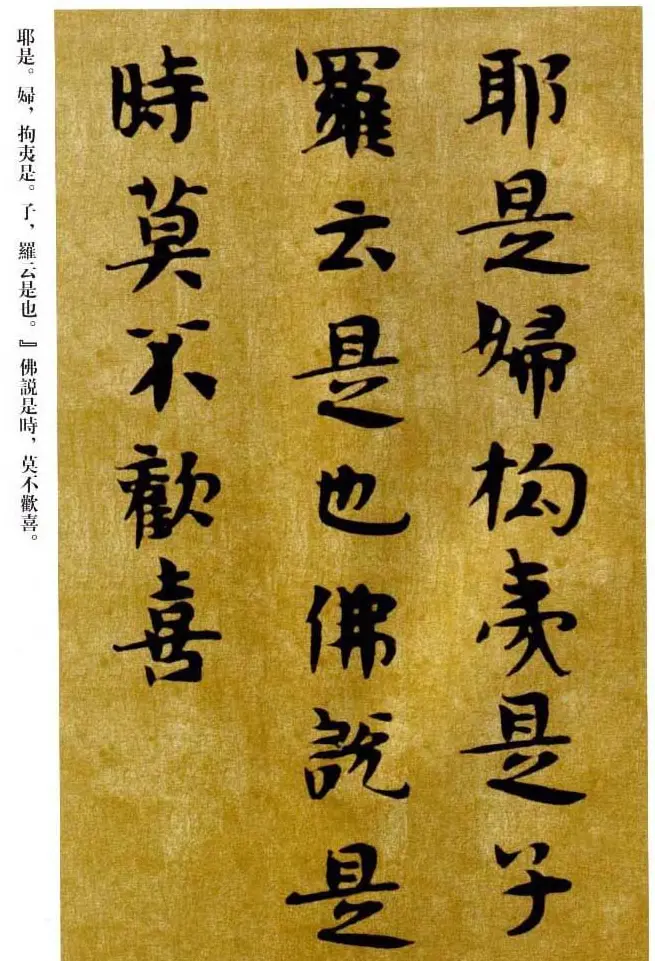 耶是婦拘夷是子
羅云是也佛説是
時莫不歡喜
耶是。婦，拘夷是。子，羅云是也。』佛説是時，莫不歡喜。